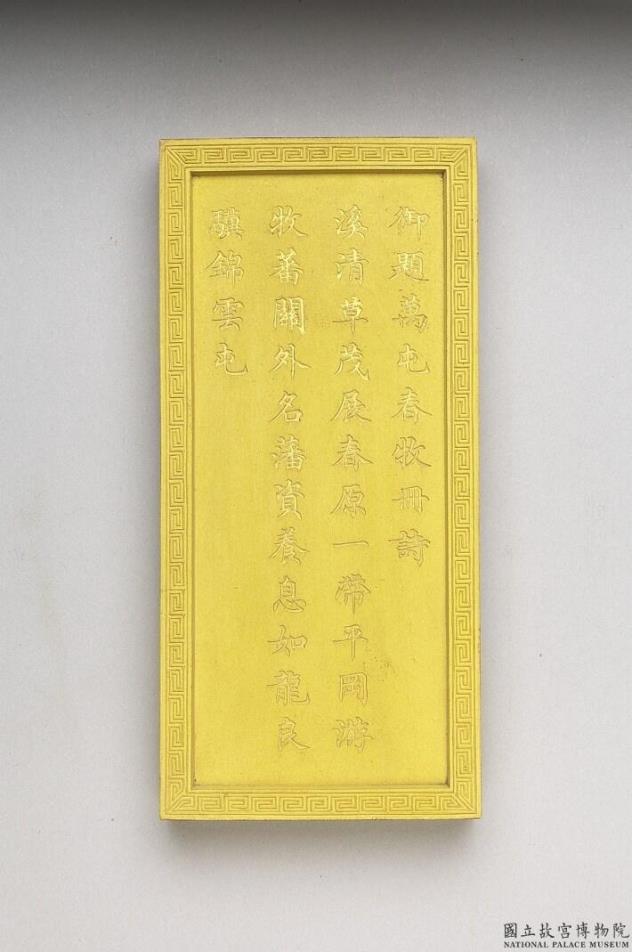 御題萬屯春牧冊詩
溪清草茂展春原一帶平岡游
牧蕃關外名藩資養息如龍良
驥錦雲屯
國立故宮博物院
NATIONAL PALACE MUSEUM